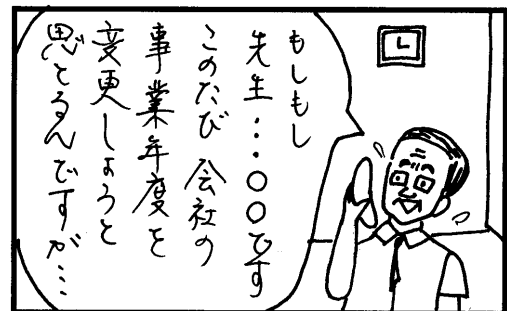 もしもし
先生...〇〇です
このたび会社の
事業年度を
変更しようと
思とるんですが...